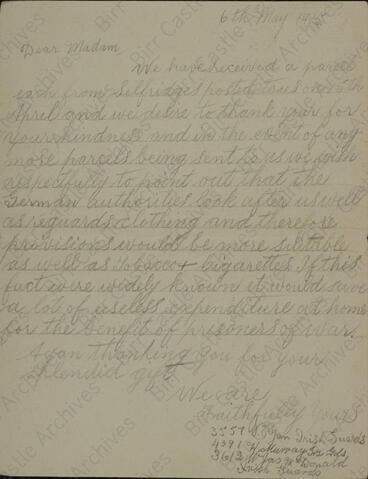 6th May 19
Dear Madam
We have received a parcel
each from Selfridges posted to us on 6th
April and we desire to thank your for
your kindness and in the event of any
more parcels being sent to us we wish
respectfully to point out that the
German authorities look after us well
as reguards clothing and therefore
provisions would be more suitable
as well as Tobacco & Cigarettes. If this
fact were widely known it would save
a lot of useless expenditure at home
for the benefit of prisoners of war.
Again thanking you for your
splendid gift
We are
Faithfully Yours
3557 Irish Guards
4391 Murray Ir Gds,
3613 Jas McDonald
Irish Guards
Birr Castle Archives